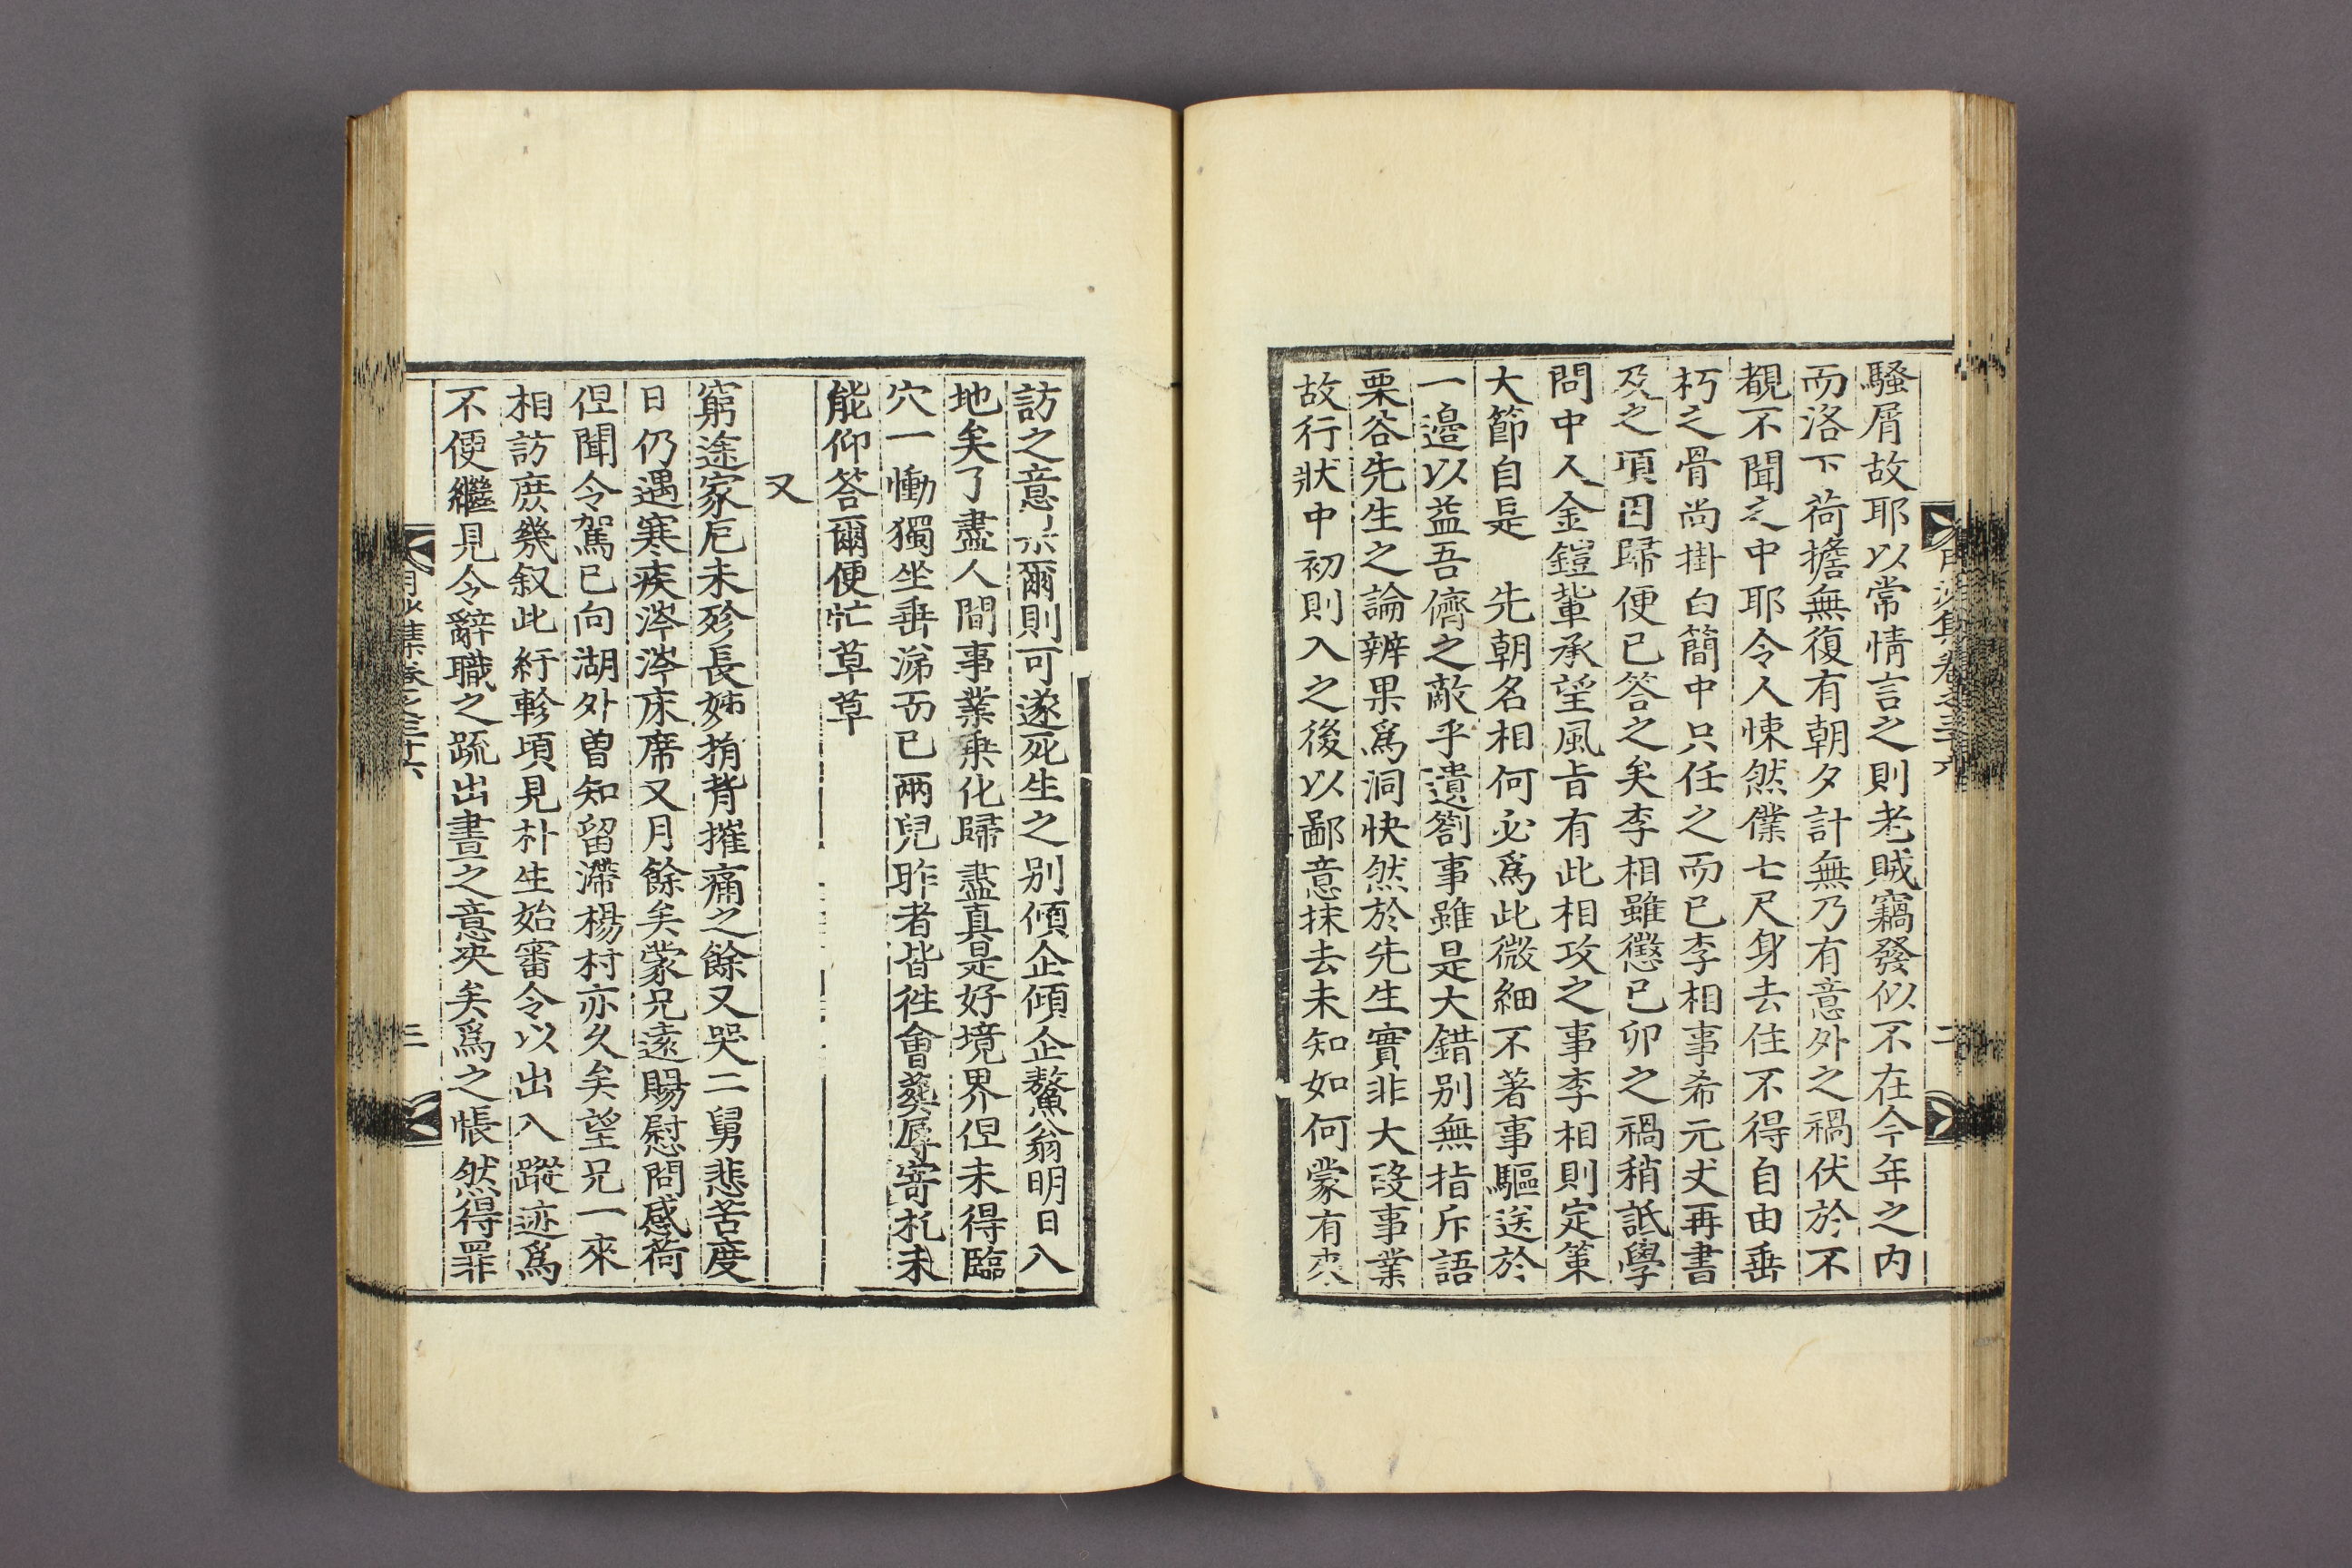 騷屑故耶以常情言之則老賊竊發似不在今年之内
而洛下荷擔無復有朝夕計無乃有意外之禍伏於不
覩不聞之中耶令人悚然僕七尺身去住不得自由垂
朽之骨尚掛白簡中只任之而已李相事希元丈再書
及之項因歸便已答之矣李相雖懲己卯之禍稍詆學
問中人金鎧輩承望風旨有此相攻之事李相則定策
大節自是 先朝名相何必爲此微細不著事驅送於
一邉以益吾儕之敵乎遺劄事雖是大錯别無指斥語
栗谷先生之論辨果爲洞快然於先生實非大段事業
故行狀中初則入之後以鄙意抹去未知如何蒙有來
訪之意示爾則可遂死生之别傾企傾企驁翁明日入
地矣了盡人間事業乗化歸盡真是好境界但未得臨
穴一慟獨坐垂涕而已兩兒昨者皆徃會葬辱寄札未
能仰答爾便忙草草
又
窮途家厄未殄長姊捐背摧痛之餘又哭二舅悲苦度
日仍遇寒疾涔涔床席又月餘矣蒙兄遠賜慰問感荷
但聞令駕已向湖外曽知留滯楊村亦久矣望兄一來
相訪庶幾叙此紆軫頃見朴生始審令以出入蹤迹爲
不便繼見令辭職之疏出晝之意决矣爲之悵然得罪
月沙集卷之三十六
二
三